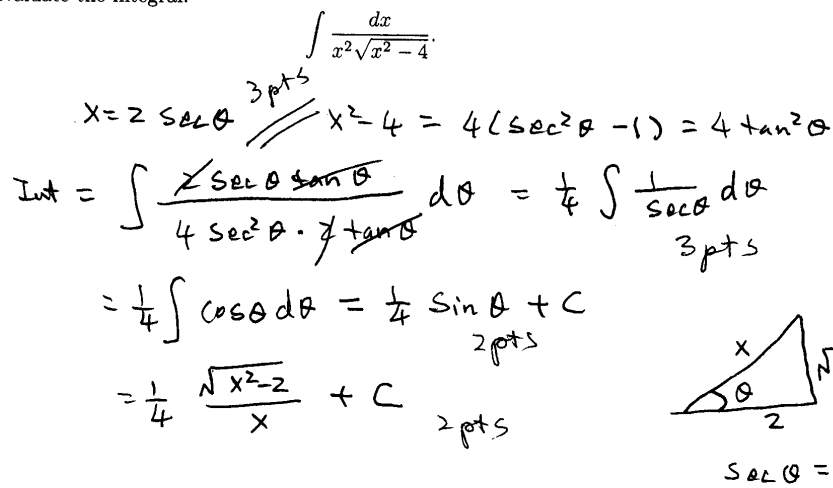 ∫ dx / (x² √(x² − 4)).
x = 2 sec θ 3 pts // x² − 4 = 4 (sec² θ − 1) = 4 tan² θ
Int = ∫ (2 sec θ tan θ) / (4 sec² θ · 2 tan θ) dθ = 1/4 ∫ 1/(sec θ) dθ
3 pts
= 1/4 ∫ cos θ dθ = 1/4 sin θ + C
2 pts
= 1/4 √(x² − 2) / x + C
2 pts
x
θ
2
sec θ =